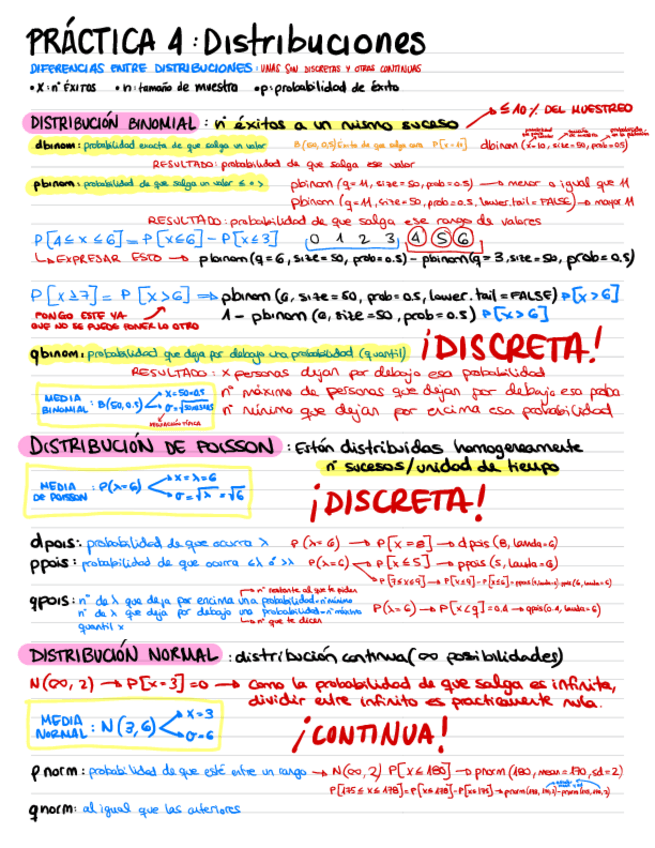 PRÁCTICA 4: Distribuciones
DIFERENCIAS ENTRE DISTRIBUCIONES: UNAS SON DISCRETAS Y OTRAS CONTINUAS
• X: nº ÉXITOS • n: tamaño de muestra • p: probabilidad de éxito
DISTRIBUCIÓN BINOMIAL: nº éxitos a un mismo suceso → ≤10% DEL MUESTREO
dbinom: probabilidad exacta de que salga un valor B(50,0,5) P[X=11] dbinom(x=10, size=50, prob=0,5)
RESULTADO: probabilidad de que salga ese valor
pbinom: probabilidad de que salga un valor ≤ o > pbinom(q=11, size=50, prob=0.5) → menor o igual que 11
pbinom(q=11, size=50, prob=0.5, lower.tail=FALSE) → mayor 11
RESULTADO: probabilidad de que salga ese rango de valores
P[4≤x≤6] = P[x≤6] - P[x≤3] 0 1 2 3 4 5 6
↳ EXPRESAR ESTO → pbinom(q=6, size=50, prob=0.5) - pbinom(q=3, size=50, prob=0,5)
P[X≥7] = P[X>6] ⇒ pbinom(6, size=50, prob=0.5, lower.tail=FALSE) P[x>6]
PONGO ESTE YA QUE NO SE PUEDE PONER LO OTRO
1 - pbinom(6, size=50, prob=0.5) P[x>6]
¡DISCRETA!
qbinom: probabilidad que deja por debajo una probabilidad (quantil)
RESULTADO: x personas dejan por debajo esa probabilidad
MEDIA BINOMIAL: B(50,0.5) X=50·0.5
DESVIACIÓN TÍPICA
nº máximo de personas que dejan por debajo esa proba
nº mínimo que dejan por encima esa probabilidad
DISTRIBUCIÓN DE POISSON: Están distribuidas homogeneamente
nº sucesos/unidad de tiempo
MEDIA DE POISSON: P(λ=6) X=λ=6 σ=√λ=√6
¡DISCRETA!
dpois: probabilidad de que ocurra λ P(λ=6) → P[X=8] → dpois(8, lamda=6)
ppois: probabilidad de que ocurra ≤λ o >λ P(λ=6) → P[x≤5] → ppois(5, lamda=6)
P[7≤x≤9] → P[x≤9] - P[x≤6]
→ nº restante al que te piden
qpois: nº de λ que deja por encima una probabilidad = nº mínimo
nº de λ que deja por debajo una probabilidad = nº máximo P(λ=6) → P[x<q]=0.4 → qpois(0.4, lamda=6)
quantil x ↳ nº que te dicen
DISTRIBUCIÓN NORMAL: distribución continua (∞ posibilidades)
N(∞, 2) → P[x=3]=0 → como la probabilidad de que salga es infinita,
dividir entre infinito es practicamente nula.
MEDIA NORMAL: N(3,6) X=3 σ=6
¡CONTINUA!
pnorm: probabilidad de que esté entre un rango → N(∞, 2) P[x≤180] → pnorm(180, mean=170, sd=2)
P[175≤x≤178] = P[x≤178] - P[x≤175]
qnorm: al igual que las anteriores